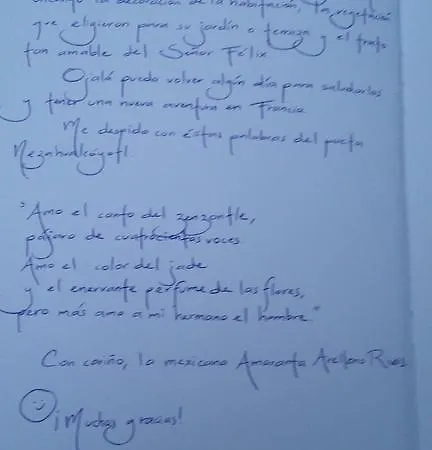 la decoración de la habitación, la vegetación
que eligieron para su jardín o terraza y el trato
tan amable del Señor Félix
Ojalá pueda volver algún día para saludarlos
y tener una nueva aventura en Francia.
Me despido con éstas palabras del poeta
Nezahualcóyotl
"Amo el canto del zenzontle,
pájaro de cuatrocientas voces
Amo el color del jade
y el enervante perfume de las flores,
pero más amo a mi hermano el hombre."
Con cariño, la mexicana Amaranta Arellano
¡Muchas gracias!